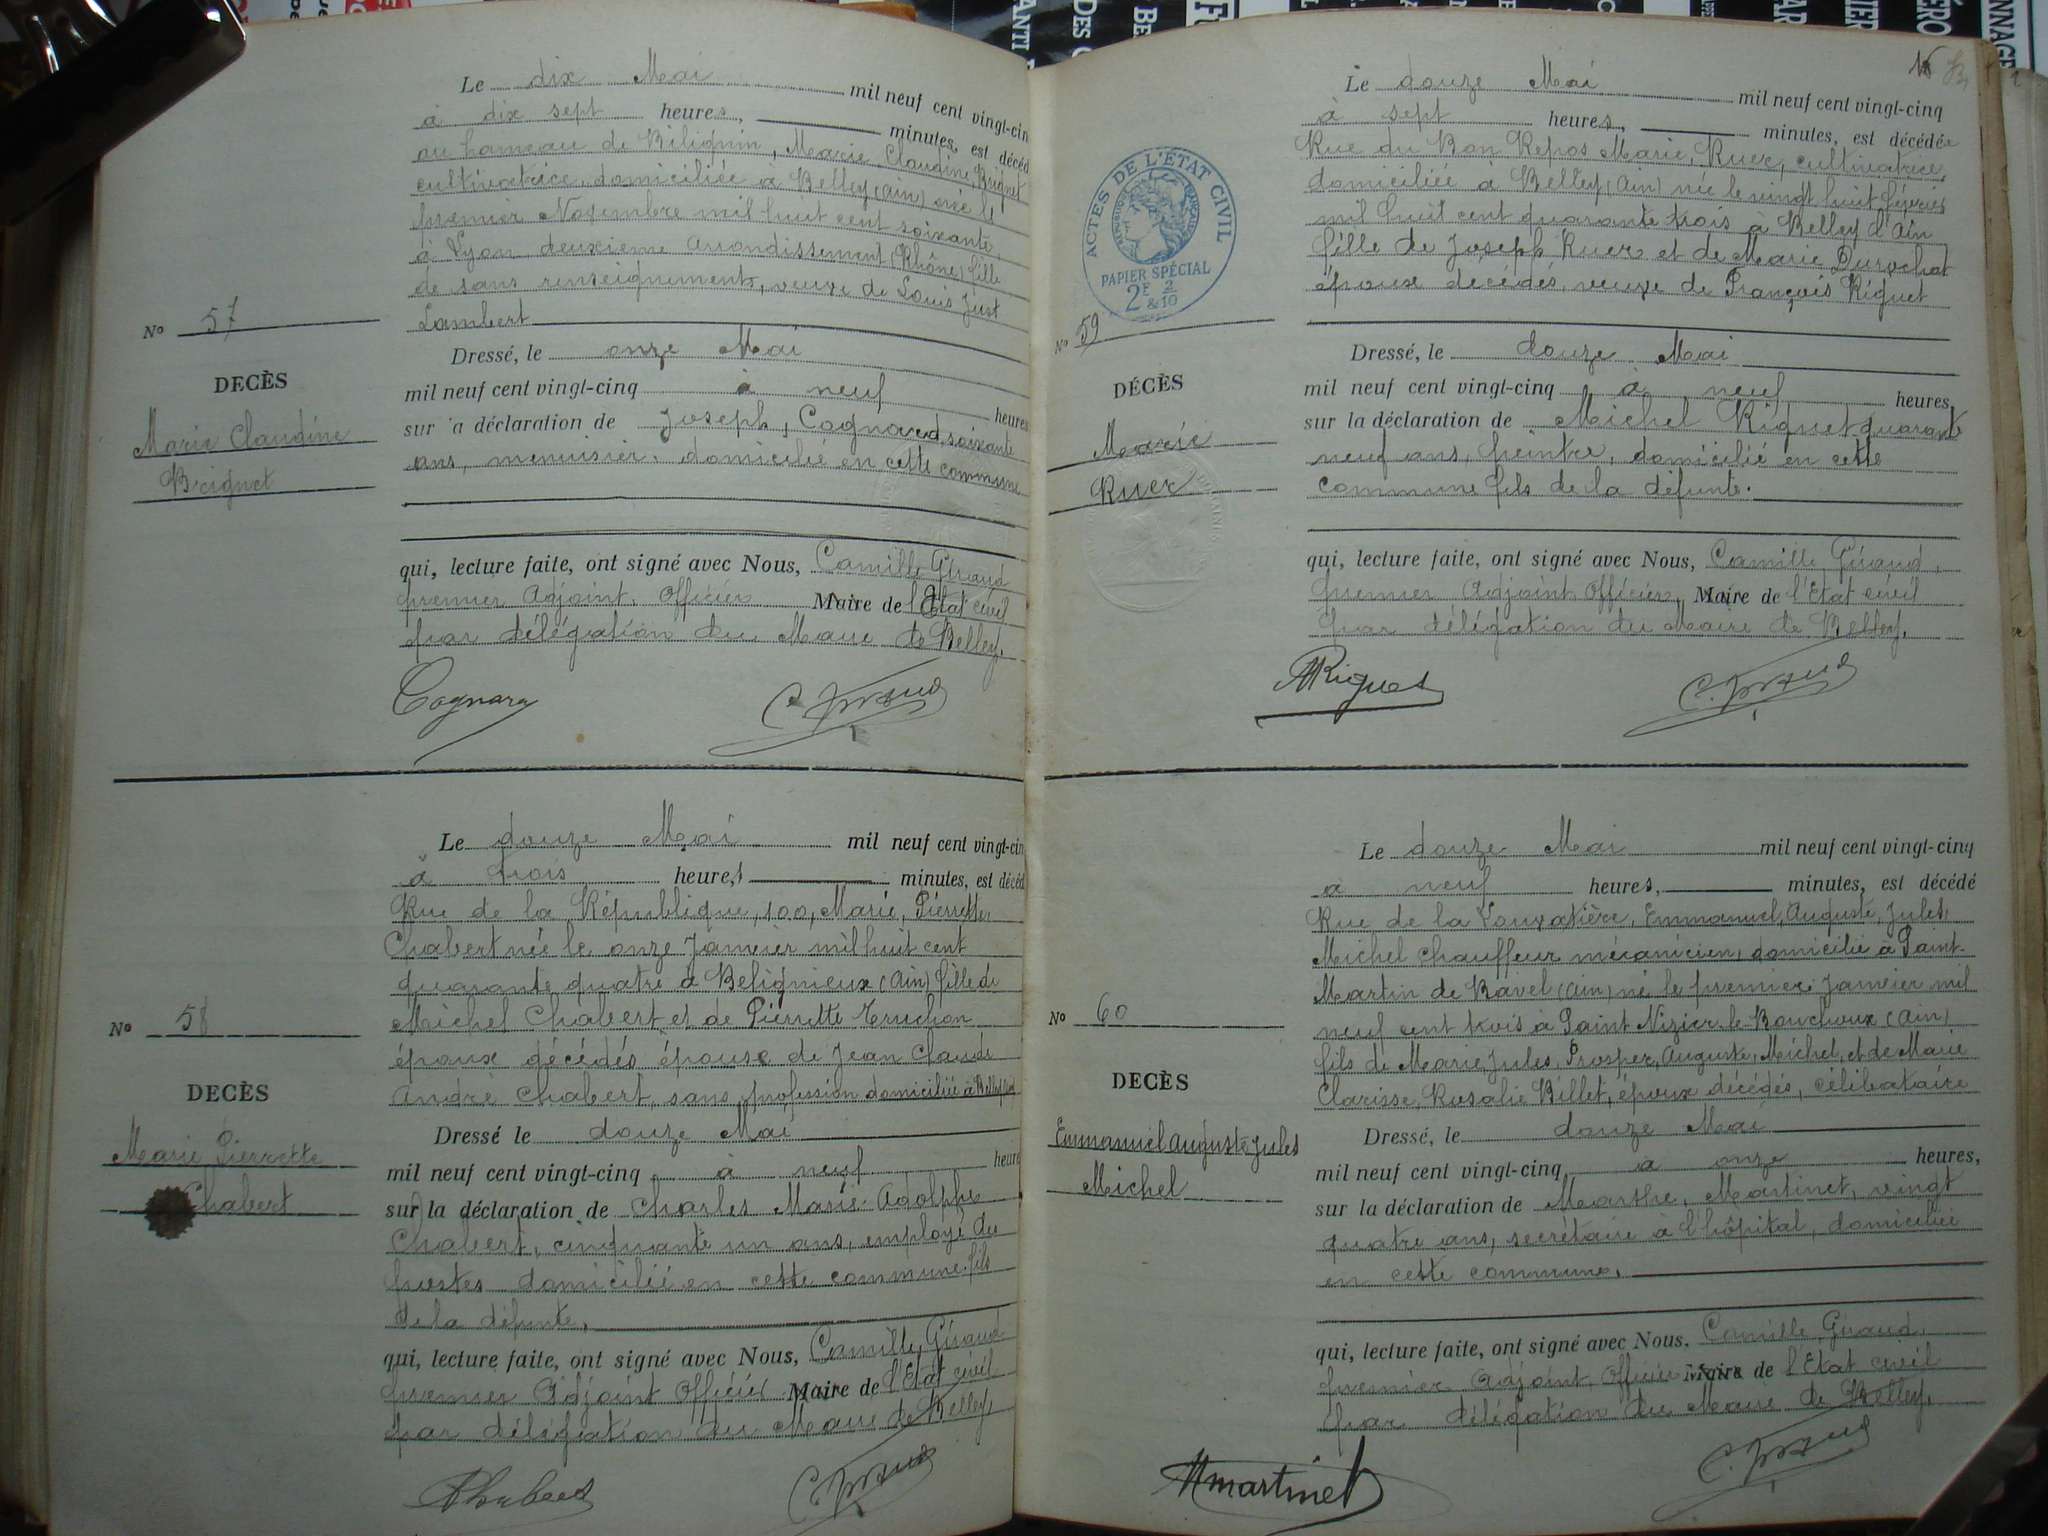 Le dix Mai mil neuf cent vingt-cin
à dix sept heures, minutes, est décéd
au hameau de Bilignin, Marie Claudine Brignet
cultivatrice, domiciliée à Belley (Ain) née le
premier Novembre mil huit cent soixante
à Lyon deuxième Arrondissement (Rhône) fille
de sans renseignements, veuve de Louis Just
Lambert
No 57
DECÈS
Marie Claudine
Brignet
Dressé, le onze Mai
mil neuf cent vingt-cinq à neuf heures
sur la déclaration de Joseph, Cognard, soixante
ans, menuisier, domicilié en cette commune
qui, lecture faite, ont signé avec Nous, Camille Giraud
premier Adjoint, Officier Maire de l'Etat civil
par délégation du Maire de Belley.
Cognard C. Giraud
Le douze Mai mil neuf cent vingt-cin
à trois heures, minutes, est décéd
Rue de la République, 100, Marie, Pierrette
Chabert née le onze Janvier mil huit cent
quarante quatre à Beligneux (Ain) fille de
Michel Chabert et de Pierrette Truchon
époux décédés épouse de Jean Claude
André Chabert, sans profession domiciliée à Belley
No 58
DECÈS
Marie Pierrette
Chabert
Dressé le douze Mai
mil neuf cent vingt-cinq à neuf heure
sur la déclaration de Charles Marie Adolphe
Chabert, cinquante un ans, employé des
postes domicilié en cette commune, fils
de la défunte,
qui, lecture faite, ont signé avec Nous, Camille Giraud
premier Adjoint Officier Maire de l'Etat civil
par délégation du Maire de Belley.
Chabert C. Giraud
Le douze Mai mil neuf cent vingt-cinq
à sept heures, minutes, est décédée
Rue du Bon Repos Marie, Ruer, cultivatrice,
domiciliée à Belley (Ain) née le vingt huit février
mil huit cent quarante trois à Belley d'Ain
fille de Joseph Ruer et de Marie Durochat
époux décédés, veuve de François Riguet
ACTES DE L'ÉTAT CIVIL
RÉPUBLIQUE FRANÇAISE
PAPIER SPÉCIAL
2F 2/10
& 10
No 59
DÉCÈS
Marie
Ruer
Dressé, le douze Mai
mil neuf cent vingt-cinq à neuf heures,
sur la déclaration de Michel Riguet quarante
neuf ans, peintre, domicilié en cette
commune fils de la défunte.
qui, lecture faite, ont signé avec Nous, Camille Giraud,
premier Adjoint Officier, Maire de l'Etat civil
par délégation du Maire de Belley.
MRiguet C. Giraud
Le douze Mai mil neuf cent vingt-cinq
à neuf heures, minutes, est décédé
Rue de la Louvatière, Emmanuel, Auguste, Jules,
Michel chauffeur mécanicien, domicilié à Saint-
Martin de Bavel (Ain) né le premier Janvier mil
neuf cent trois à Saint Nizier-le-Bouchoux (Ain)
fils de Marie, Jules, Prosper, Auguste, Michel, et de Marie
Clarisse, Rosalie Billet, époux décédés, célibataire
No 60
DECÈS
Emmanuel Auguste Jules
Michel
Dressé, le douze Mai
mil neuf cent vingt-cinq, à onze heures,
sur la déclaration de Marthe, Martinet, vingt
quatre ans, secrétaire à l'hôpital, domiciliée
en cette commune.
qui, lecture faite, ont signé avec Nous, Camille Giraud,
premier Adjoint, Officier Maire de l'Etat civil
par délégation du Maire de Belley.
Mmartinet C. Giraud